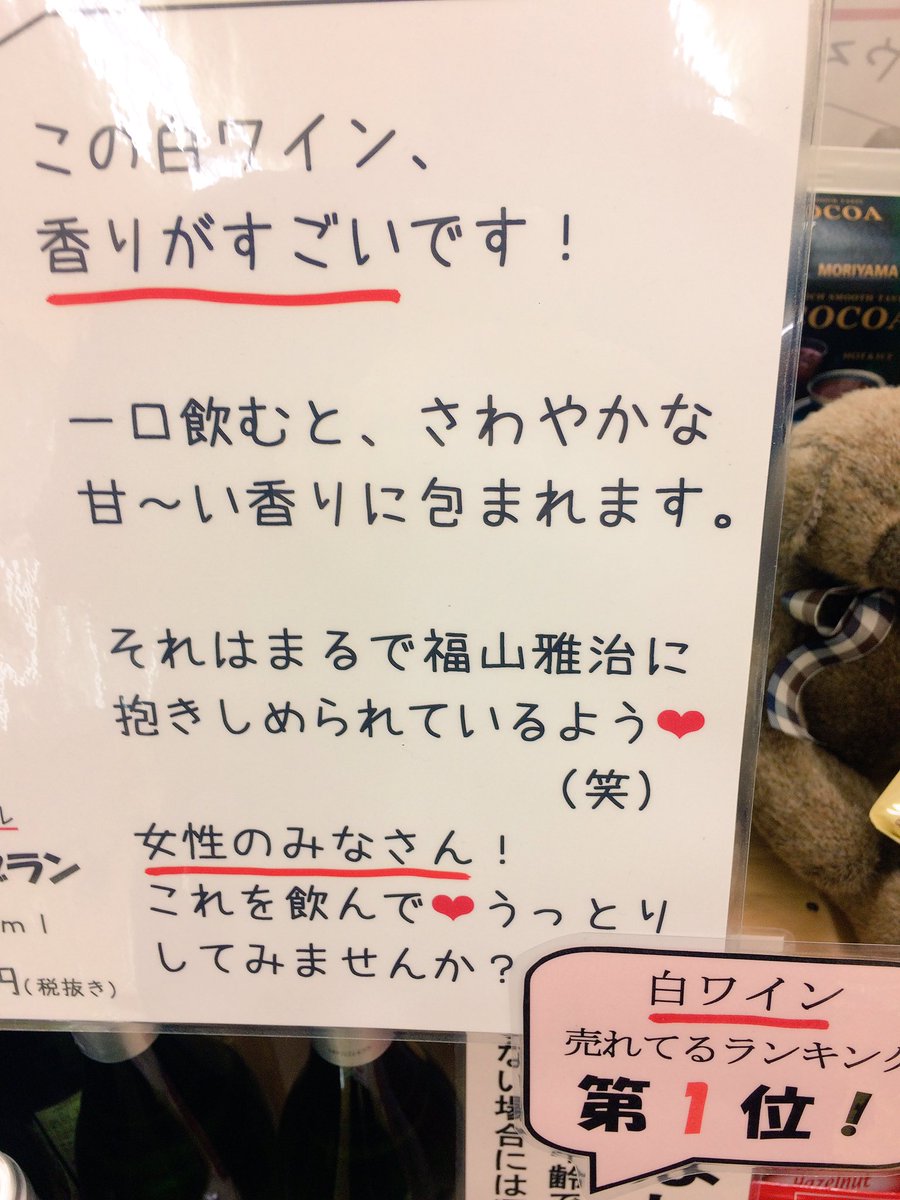 この白ワイン、
香りがすごいです！
一口飲むと、さわやかな
甘～い香りに包まれます。
それはまるで福山雅治に
抱きしめられているよう❤
（笑）
女性のみなさん！
これを飲んで❤うっとり
してみませんか？
ル
ブラン
ml
円(税抜き)
白ワイン
売れてるランキング
第1位！
ない場合には
齢で
COCOA
MORIYAMA
COCOA
Hazelnut